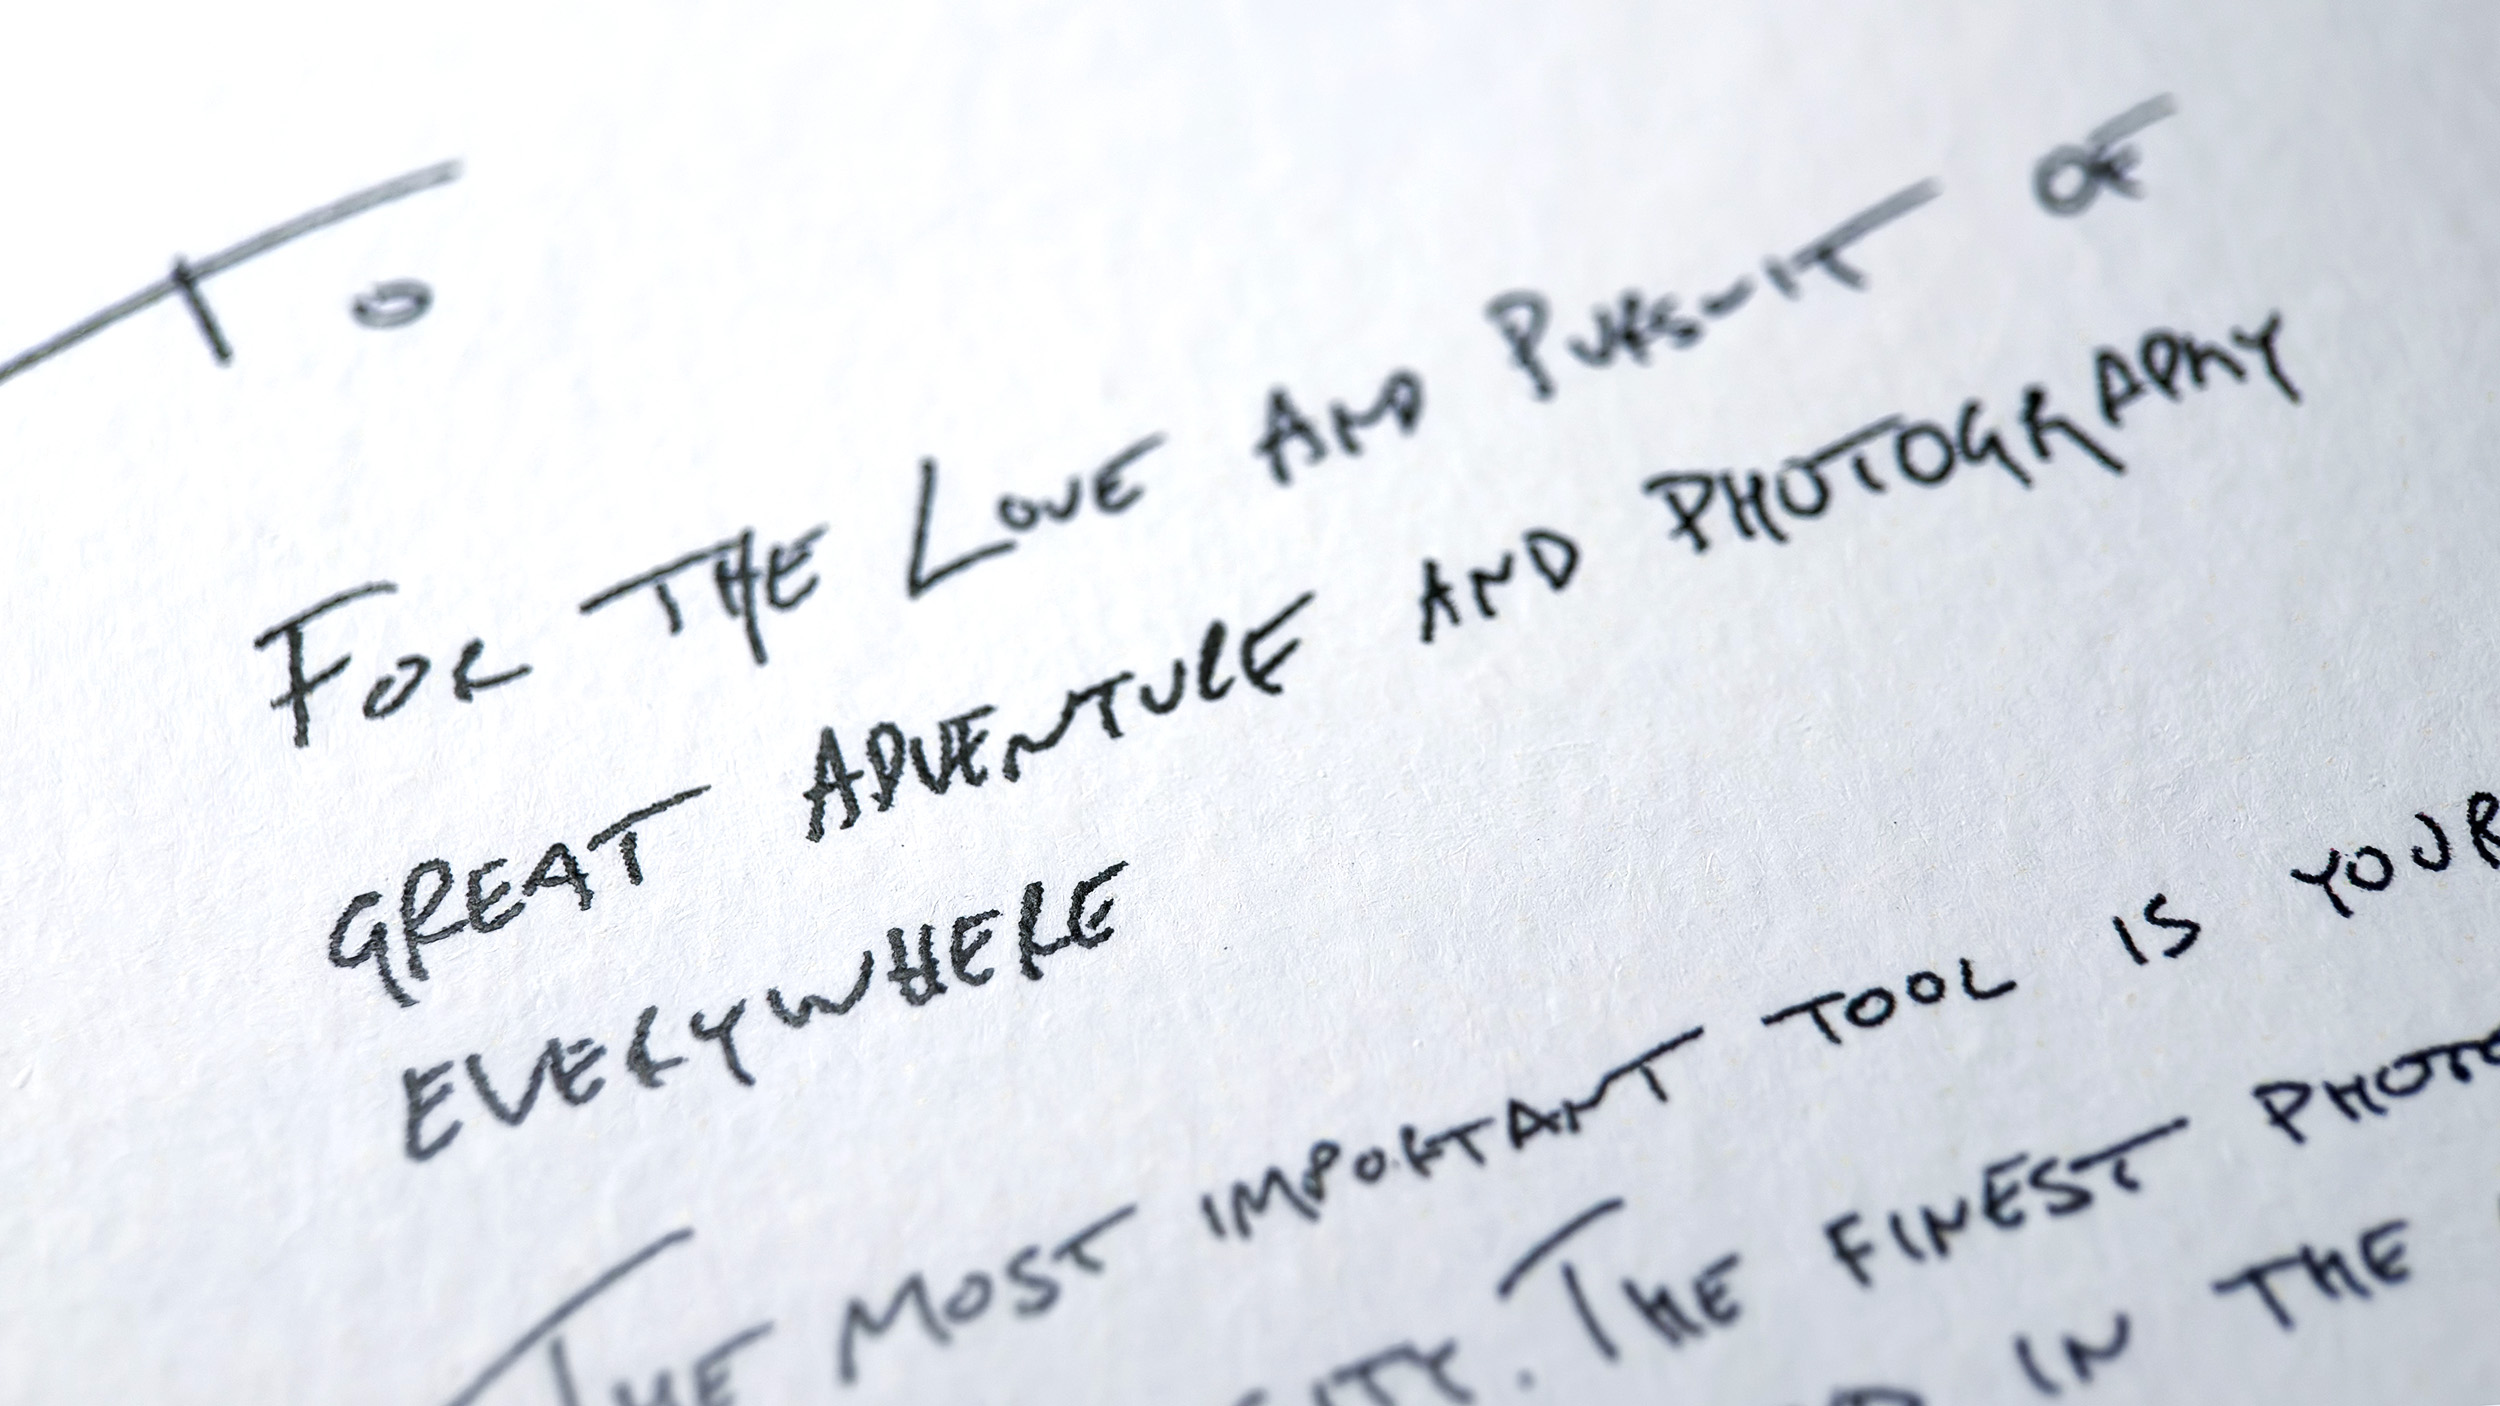 To
For the Love and Pursuit of
GREAT ADVENTURE AND PHOTOGRAPHY
EVERYWHERE
THE MOST IMPORTANT TOOL IS YOUR
THE FINEST
IN THE